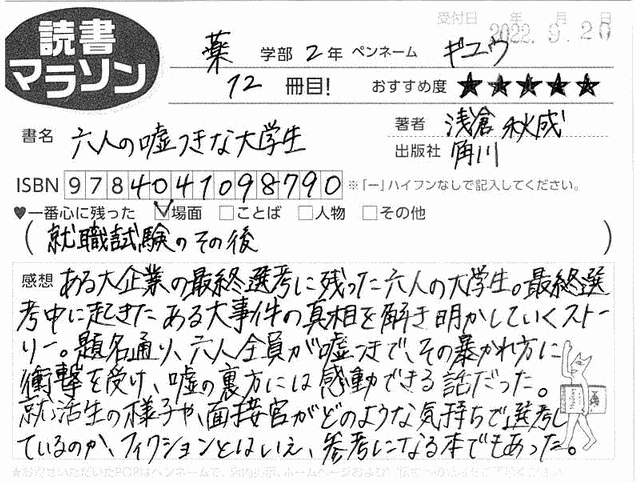 読書
マラソン
受付日 年 月 日
2022.9.20
薬 学部 2年 ペンネーム ギユウ
12 冊目! おすすめ度 ★★★★★
書名 六人の嘘つきな大学生
著者 浅倉秋成
出版社 角川
ISBN 9784041098790 ※「ー」ハイフンなしで記入してください。
♥一番心に残った ☑場面 □ことば □人物 □その他
(就職試験のその後)
感想 ある大企業の最終選考に残った六人の大学生。最終選
考中に起きたある大事件の真相を解き明かしていくストー
リー。題名通り、六人全員が嘘つきで、その暴かれ方に
衝撃を受け、嘘の裏方には感動できる話だった。
就活生の様子や、面接官がどのような気持ちで選考し
ているのか、フィクションとはいえ、参考になる本でもあった。